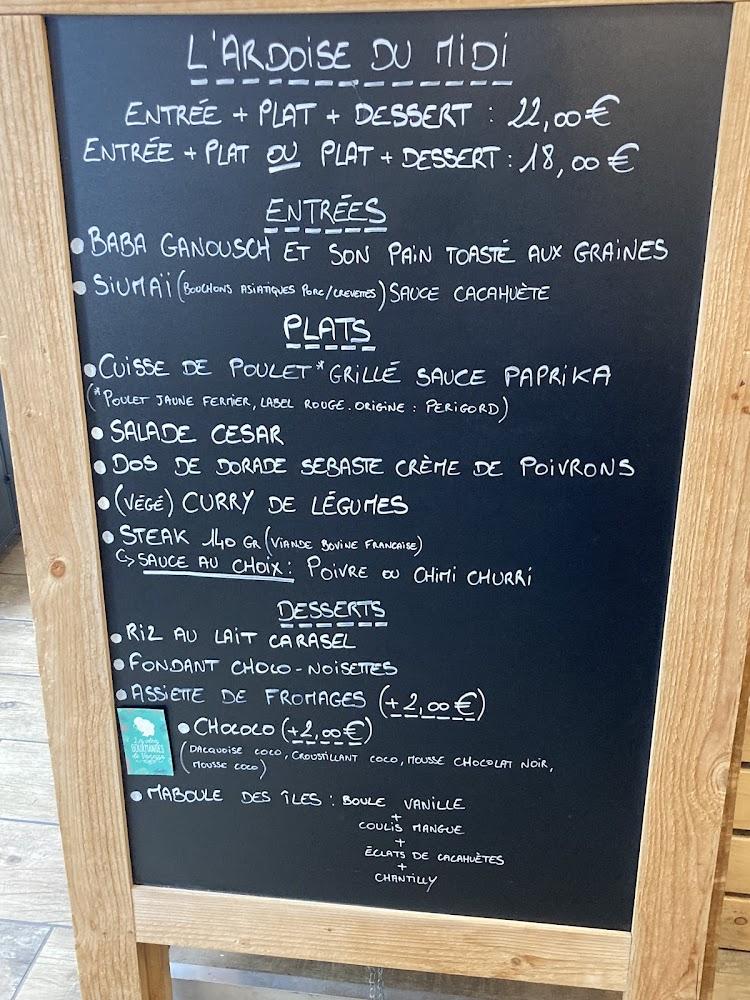 L'ARDOISE DU MIDI
ENTRÉE + PLAT + DESSERT : 22,00€
ENTRÉE + PLAT OU PLAT + DESSERT : 18,00€
ENTRÉES
• BABA GANOUSCH ET SON PAIN TOASTÉ AUX GRAINES
• SIUMAÏ (BOUCHONS ASIATIQUES PORC/CREVETTES) SAUCE CACAHUÈTE
PLATS
• CUISSE DE POULET* GRILLÉ SAUCE PAPRIKA
(*POULET JAUNE FERMIER, LABEL ROUGE. ORIGINE : PERIGORD)
• SALADE CESAR
• DOS DE DORADE SEBASTE CRÈME DE POIVRONS
• (VÉGÉ) CURRY DE LÉGUMES
• STEAK 140 GR (VIANDE BOVINE FRANCAISE)
↳ SAUCE AU CHOIX : POIVRE OU CHIMI CHURRI
DESSERTS
• RIZ AU LAIT CARASEL
• FONDANT CHOCO-NOISETTES
• ASSIETTE DE FROMAGES (+2,00€)
• CHOCOCO (+2,00€)
(DACQUOISE COCO, CROUSTILLANT COCO, MOUSSE CHOCOLAT NOIR,
MOUSSE COCO)
• MABOULE DES ÎLES : BOULE VANILLE
+
COULIS MANGUE
+
ÉCLATS DE CACAHUÈTES
+
CHANTILLY
GOURMANDES